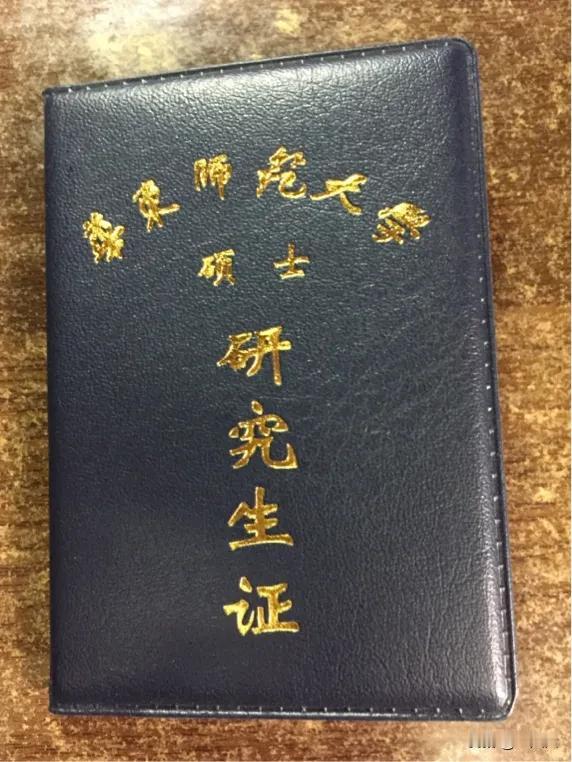 华东师范大学
硕士
研究生证